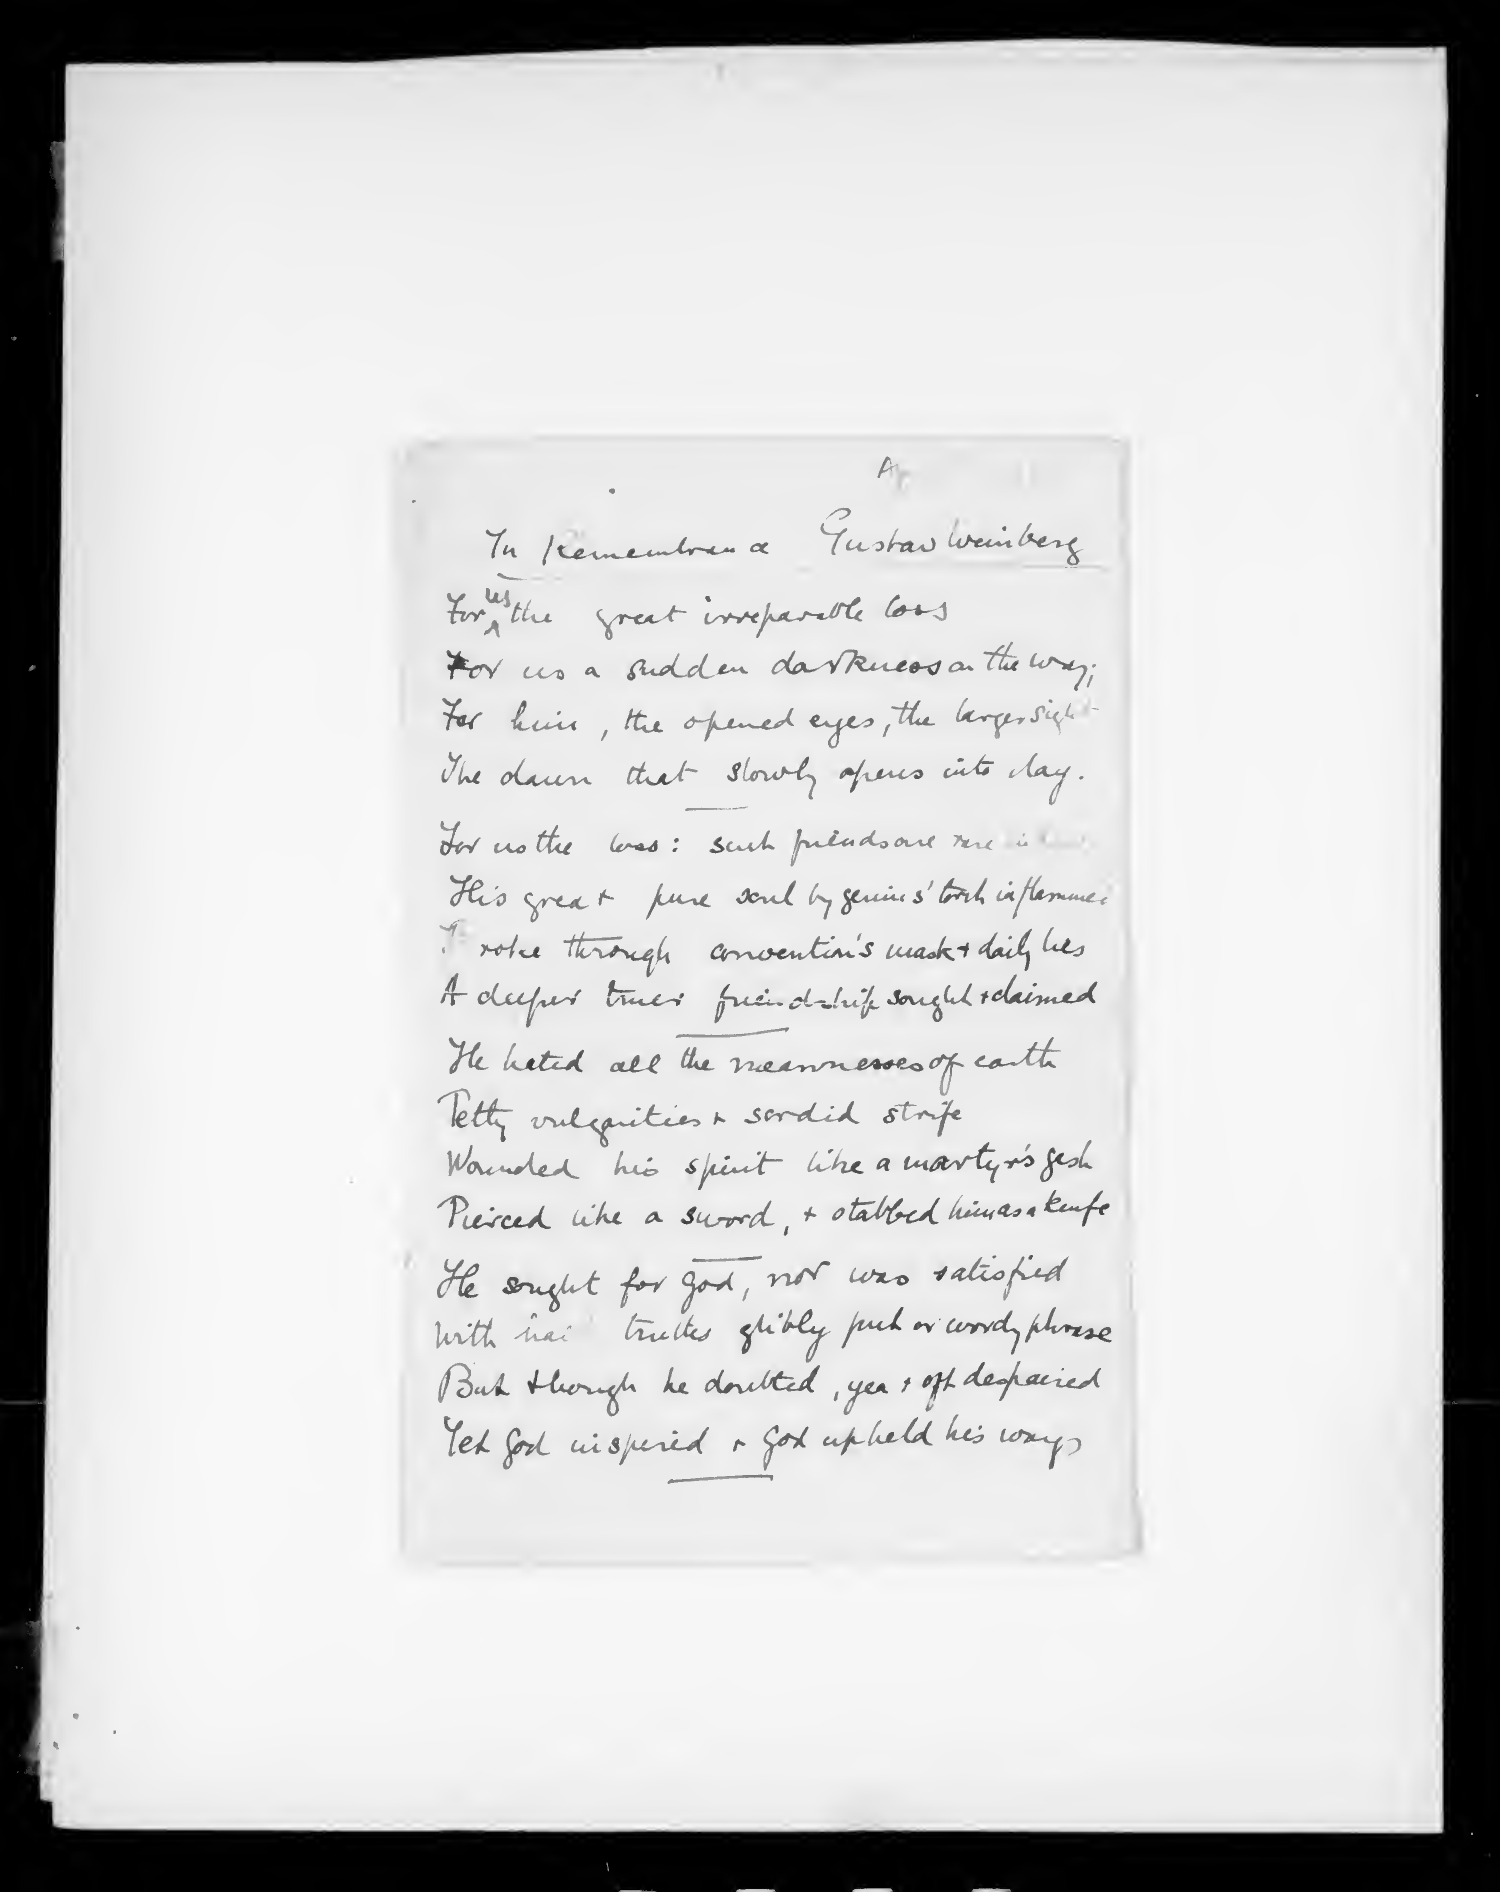 In Remembrance Gustav Weinberg
For us the great irreparable loss
For us a sudden darkness on the way;
For him, the opened eyes, the larger sight
The dawn that slowly opens into day.
For us the loss: such friends are rare
His great pure soul by genius' torch inflamed
through convention's mask + daily lies
A deeper truer friendship sought + claimed
He hated all the meannesses of earth
Petty vulgarities + sordid strife
Wounded his spirit like a martyr's
Pierced like a sword, + stabbed him as a knife
He sought for God, nor was satisfied
With truths glibly put or wordy phrase
But though he doubted, yea + oft despaired
Yet God inspired + God upheld his ways